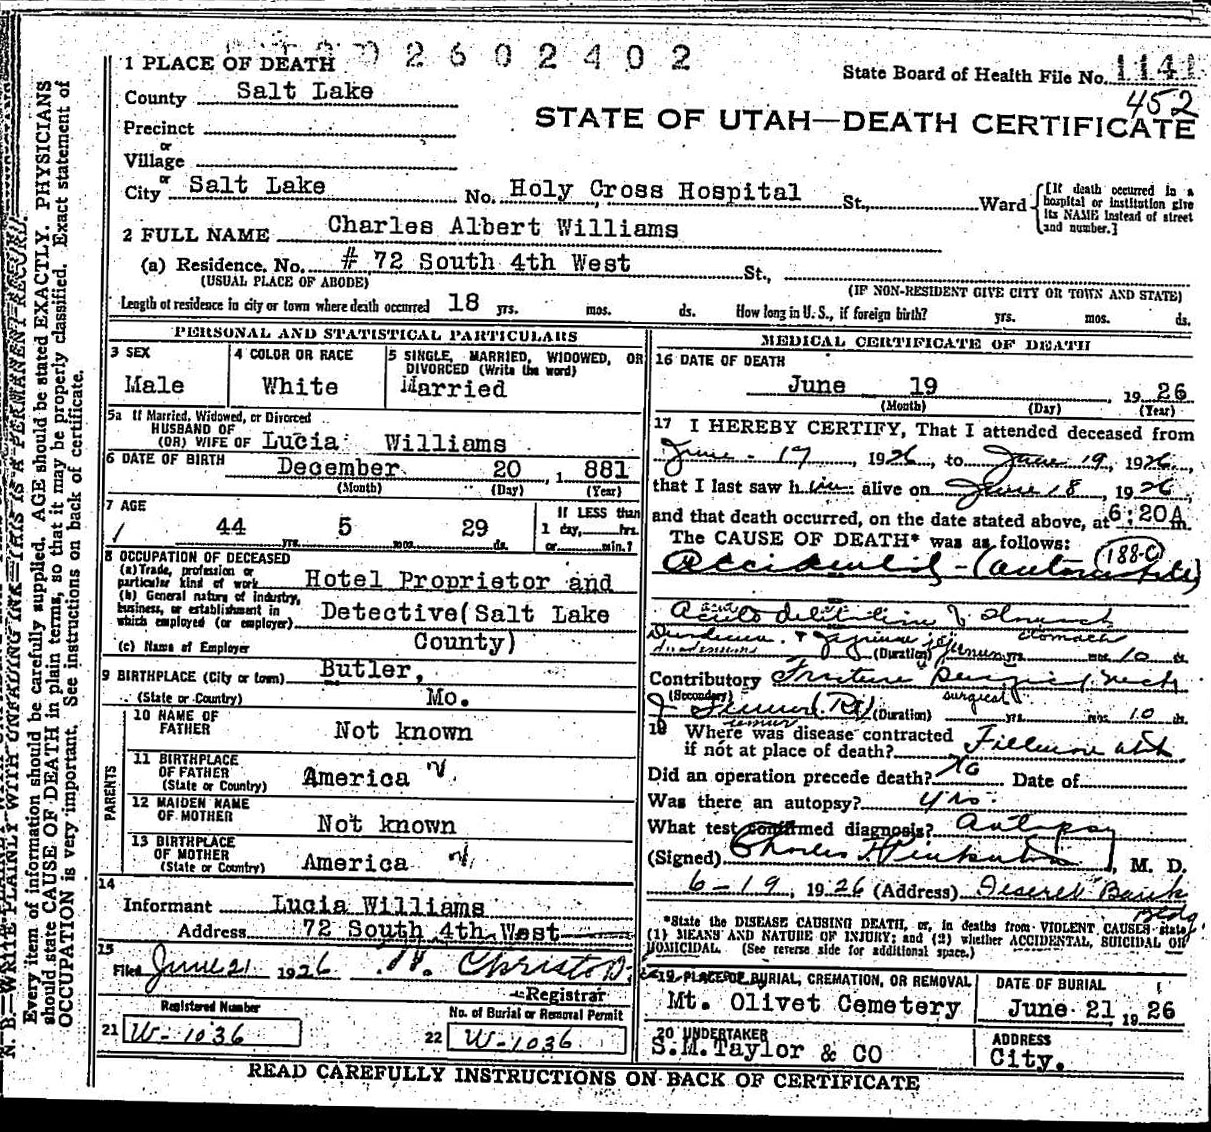 2602402
1 PLACE OF DEATH
State Board of Health File No. 1141
452
County Salt Lake
STATE OF UTAH—DEATH CERTIFICATE
Precinct
or
Village
or
City Salt Lake No. Holy Cross Hospital St., Ward
[If death occurred in a hospital or institution give its NAME instead of street and number.]
2 FULL NAME Charles Albert Williams
(a) Residence. No. # 72 South 4th West St.,
(USUAL PLACE OF ABODE) (IF NON-RESIDENT GIVE CITY OR TOWN AND STATE)
Length of residence in city or town where death occurred 18 yrs. mos. ds. How long in U. S., if foreign birth? yrs. mos. ds.
PERSONAL AND STATISTICAL PARTICULARS
3 SEX
Male
4 COLOR OR RACE
White
5 SINGLE, MARRIED, WIDOWED, OR DIVORCED (Write the word)
Married
5a If Married, Widowed, or Divorced
HUSBAND OF
(OR) WIFE OF Lucia Williams
6 DATE OF BIRTH December 20, 1881
(Month) (Day) (Year)
7 AGE
44 yrs. 5 mos. 29 ds.
If LESS than
1 day, hrs.
or min.?
8 OCCUPATION OF DECEASED
(a) Trade, profession or
particular kind of work Hotel Proprietor and
(b) General nature of industry,
business, or establishment in
which employed (or employer) Detective(Salt Lake
(c) Name of Employer County)
9 BIRTHPLACE (City or town) Butler,
(State or Country) Mo.
PARENTS
10 NAME OF
FATHER Not known
11 BIRTHPLACE
OF FATHER
(State or Country) America
12 MAIDEN NAME
OF MOTHER Not known
13 BIRTHPLACE
OF MOTHER
(State or Country) America
14
Informant Lucia Williams
Address 72 South 4th West
15
Filed June 21 1926
Registrar
Registered Number
21 W-1036
No. of Burial or Removal Permit
22 W-1036
MEDICAL CERTIFICATE OF DEATH
16 DATE OF DEATH
June 19, 1926
(Month) (Day) (Year)
17 I HEREBY CERTIFY, That I attended deceased from
June 17, 1926, to June 19, 1926,
that I last saw him alive on June 18, 1926,
and that death occurred, on the date stated above, at 6:20A m.
The CAUSE OF DEATH* was as follows:
188-C
Accidental - (automobile)
and
Acute dilitation of stomach
stomach
Duodenum & jejunum
duodenum (Duration) yrs. mos. 10 ds.
Contributory Fracture surgical neck
(Secondary) surgical
of Femur Rt (Duration) yrs. mos. 10 ds.
femur
18 Where was disease contracted
if not at place of death? Fillmore Utah
Did an operation precede death? No Date of
Was there an autopsy? yes.
What test confirmed diagnosis? Autopsy
(Signed) Charles, M. D.
6-19, 1926 (Address) Deseret Bank
Bldg
*State the DISEASE CAUSING DEATH, or, in deaths from VIOLENT CAUSES state
(1) MEANS AND NATURE OF INJURY; and (2) whether ACCIDENTAL, SUICIDAL OR
HOMICIDAL. (See reverse side for additional space.)
19 PLACE OF BURIAL, CREMATION, OR REMOVAL
Mt. Olivet Cemetery
DATE OF BURIAL
June 21, 1926
20 UNDERTAKER
S.M.Taylor & CO
ADDRESS
City.
READ CAREFULLY INSTRUCTIONS ON BACK OF CERTIFICATE
N. B.—WRITE PLAINLY WITH UNFADING INK—THIS IS A PERMANENT RECORD.
Every item of information should be carefully supplied. AGE should be stated EXACTLY. PHYSICIANS
should state CAUSE OF DEATH in plain terms, so that it may be properly classified. Exact statement of
OCCUPATION is very important. See instructions on back of certificate.